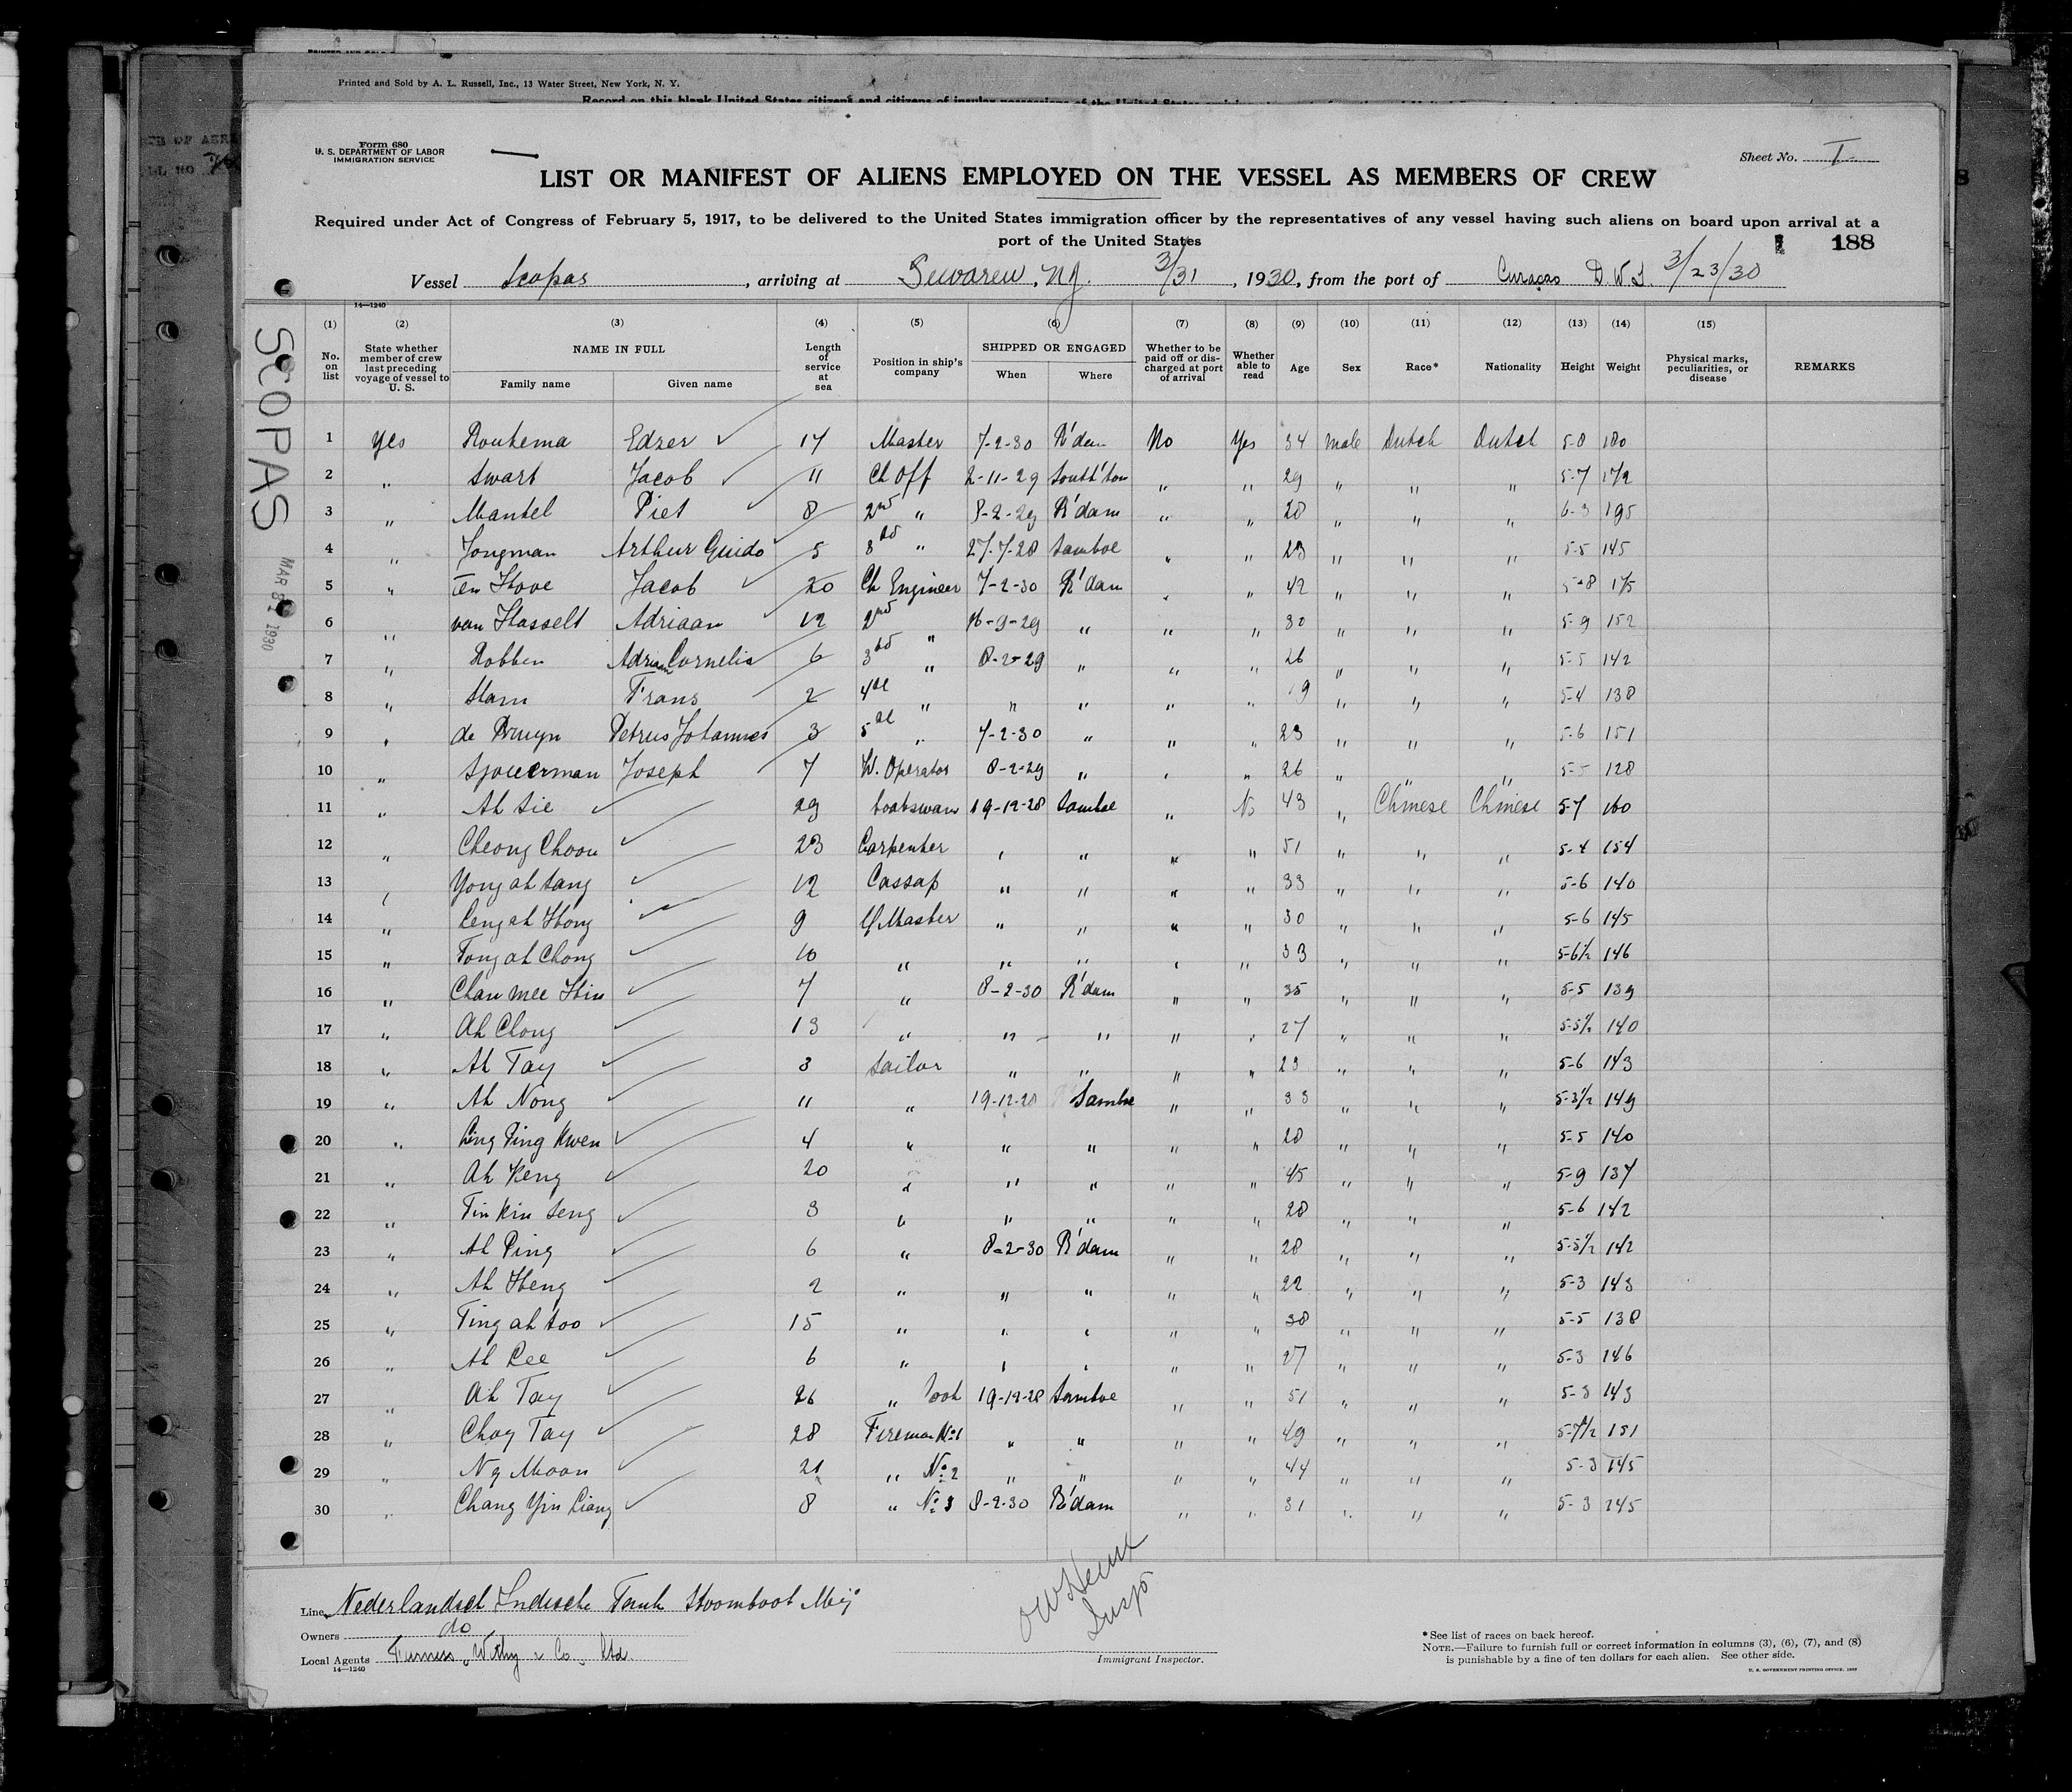 Printed and Sold by A. L. Russell, Inc., 13 Water Street, New York, N. Y.
Record on this blank United States citizens and citizens of insular possessions of the United States
Form 680
U. S. DEPARTMENT OF LABOR
IMMIGRATION SERVICE
Sheet No. I
LIST OR MANIFEST OF ALIENS EMPLOYED ON THE VESSEL AS MEMBERS OF CREW
Required under Act of Congress of February 5, 1917, to be delivered to the United States immigration officer by the representatives of any vessel having such aliens on board upon arrival at a
port of the United States
188
Vessel Scopas, arriving at Sewaren, NJ. 3/31, 1930, from the port of Curaçao D.W.I. 3/23/30
14—1240
SCOPAS
MAR 31 1930
(1) (2) (3) (4) (5) (6) (7) (8) (9) (10) (11) (12) (13) (14) (15)
No. on list State whether member of crew last preceding voyage of vessel to U. S. NAME IN FULL Family name Given name Length of service at sea Position in ship's company SHIPPED OR ENGAGED When Where Whether to be paid off or discharged at port of arrival Whether able to read Age Sex Race* Nationality Height Weight Physical marks, peculiarities, or disease REMARKS
1 Yes Roukema Edzer 17 Master 7-2-30 R'dam No Yes 34 Male Dutch Dutch 5-8 180
2 " Swart Jacob 11 Ch Off 2-11-29 South'ton " " 29 " " " 5-7 172
3 " Mantel Piet 8 2nd " 8-2-29 R'dam " " 28 " " " 6-3 195
4 " Jongman Arthur Guido 5 3rd " 27-7-28 Samboe " " 23 " " " 5-5 145
5 " Ten Hove Jacob 20 Ch Engineer 7-2-30 R'dam " " 42 " " " 5-8 175
6 " van Hasselt Adriaan 12 2nd " 16-9-29 " " " 30 " " " 5-9 152
7 " Robben Adriaan Cornelis 6 3rd " 8-2-29 " " " 26 " " " 5-5 142
8 " Stam Frans 2 4de " " " " " 19 " " " 5-4 138
9 " de Bruyn Petrus Johannes 3 5de " 7-2-30 " " " 23 " " " 5-6 151
10 " Sjouerman Joseph 7 W. Operator 8-2-29 " " " 26 " " " 5-5 128
11 " Ah Sie 29 boatswain 19-12-28 Samboe " No 43 " Chinese Chinese 5-7 160
12 " Cheong Choon 23 Carpenter " " " " 51 " " " 5-4 154
13 " Yong ah Sang 12 Cassap " " " " 33 " " " 5-6 140
14 " Leng ah Hong 9 Q Master " " " " 30 " " " 5-6 145
15 " Tong ah Chong 10 " " " " " 33 " " " 5-6½ 146
16 " Chan Mee Hin 7 " 8-2-30 R'dam " " 35 " " " 5-5 139
17 " Ah Chong 13 " " " " " 27 " " " 5-5½ 140
18 " Ah Tay 3 Sailor " " " " 23 " " " 5-6 143
19 " Ah Nong 11 " 19-12-28 Samboe " " 33 " " " 5-3½ 149
20 " Ling Ping Kwen 4 " " " " " 28 " " " 5-5 140
21 " Ah Keng 20 " " " " " 45 " " " 5-9 137
22 " Tin Kin Seng 3 " " " " " 28 " " " 5-6 142
23 " Ah Ping 6 " 8-2-30 R'dam " " 28 " " " 5-5½ 142
24 " Ah Heng 2 " " " " " 22 " " " 5-3 143
25 " Ting ah Soo 15 " " " " " 38 " " " 5-5 138
26 " Ah Lee 6 " " " " " 27 " " " 5-3 146
27 " Ah Tay 26 " Cook 19-12-28 Samboe " " 51 " " " 5-3 143
28 " Choy Tay 28 Fireman No 1 " " " " 49 " " " 5-7½ 151
29 " Ng Moon 21 " No 2 " " " " 44 " " " 5-3 145
30 " Chang Yin Liang 8 " No 3 8-2-30 R'dam " " 31 " " " 5-3 245
Line Nederlandsch Indische Tank Stoomboot Mij
Owners do
Local Agents Furness, Withy & Co., Ltd.
14—1240
Insp
Immigrant Inspector.
*See list of races on back hereof.
NOTE.—Failure to furnish full or correct information in columns (3), (6), (7), and (8)
is punishable by a fine of ten dollars for each alien. See other side.
U. S. GOVERNMENT PRINTING OFFICE, 1929